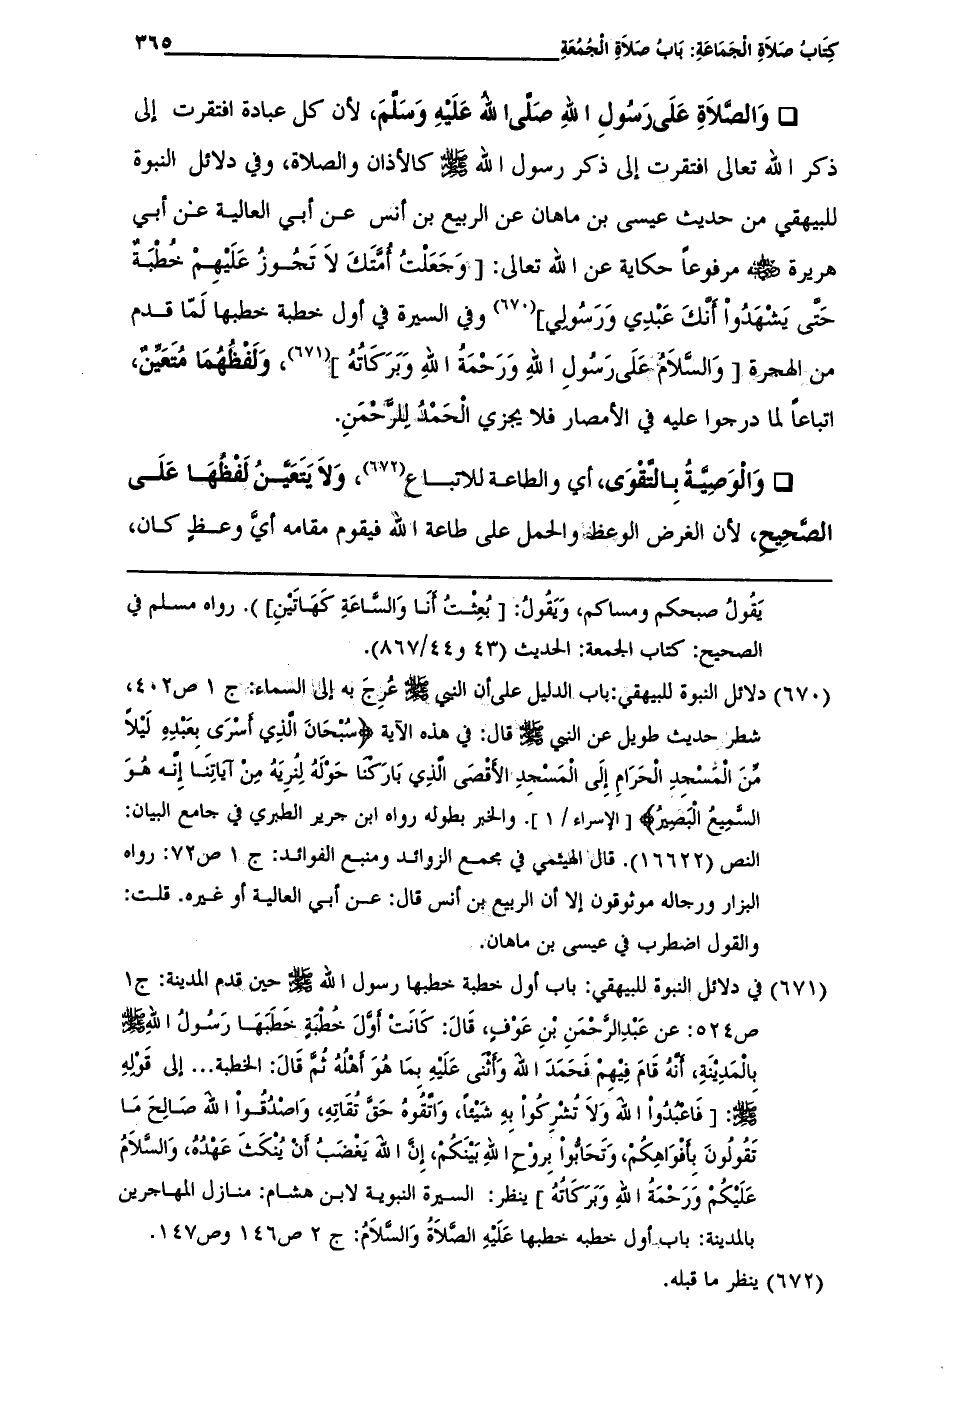 كِتَابُ صَلَاةِ الْجَمَاعَةِ: بَابُ صَلَاةِ الْجُمُعَةِ ٣٦٥
❑ وَالصَّلَاةِ عَلَى رَسُولِ اللهِ صَلَّى اللهُ عَلَيْهِ وَسَلَّمَ، لأن كل عبادة افتقرت إلى
ذكر الله تعالى افتقرت إلى ذكر رسول الله ﷺ كالأذان والصلاة، وفي دلائل النبوة
للبيهقي من حديث عيسى بن ماهان عن الربيع بن أنس عن أبي العالية عن أبي
هريرة ﷺ مرفوعاً حكاية عن الله تعالى: [ وَجَعَلْتُ أُمَّتَكَ لَا تَجُوزُ عَلَيْهِمْ خُطْبَةٌ
حَتَّى يَشْهَدُواْ أَنَّكَ عَبْدِي وَرَسُولِي](٦٧٠) وفي السيرة في أول خطبة خطبها لَمّا قدم
من الهجرة [ وَالسَّلَامُ عَلَى رَسُولِ اللهِ وَرَحْمَةُ اللهِ وَبَرَكَاتُهُ ](٦٧١)، وَلَفْظُهُمَا مُتَعَيِّنٌ،
اتباعاً لما درجوا عليه في الأمصار فلا يجزي الْحَمْدُ لِلرَّحْمَنِ.
❑ وَالْوَصِيَّةُ بِالتَّقْوَى، أي والطاعة للاتباع(٦٧٢)، وَلاَ يَتَعَيَّنُ لَفْظُهَا عَلَى
الصَّحِيحِ، لأن الغرض الوعظ والحمل على طاعة الله فيقوم مقامه أيَّ وعظٍ كان،
يَقُولُ صبحكم ومساكم، وَيَقُولُ: [ بُعِثْتُ أَنَا وَالسَّاعَةِ كَهَاتَيْنِ] ). رواه مسلم في
الصحيح: كتاب الجمعة: الحديث (٤٣ و٨٦٧/٤٤).
(٦٧٠) دلائل النبوة للبيهقي:باب الدليل على أن النبي ﷺ عُرِجَ به إلى السماء: ج ١ ص٤٠٢،
شطر حديث طويل عن النبي ﷺ قال: في هذه الآية ﴿سُبْحَانَ الَّذِي أَسْرَى بِعَبْدِهِ لَيْلاً
مِّنَ الْمَسْجِدِ الْحَرَامِ إِلَى الْمَسْجِدِ الأَقْصَى الَّذِي بَارَكْنَا حَوْلَهُ لِنُرِيَهُ مِنْ آيَاتِنَا إِنَّه هُوَ
السَّمِيعُ الْبَصِيرُ﴾ [ الإسراء / ١ ]. والخبر بطوله رواه ابن جرير الطبري في جامع البيان:
النص (١٦٦٢٢). قال الهيثمي في مجمع الزوائد ومنبع الفوائد: ج ١ ص٧٢: رواه
البزار ورجاله موثوقون إلا أن الربيع بن أنس قال: عن أبي العالية أو غيره. قلت:
والقول اضطرب في عيسى بن ماهان.
(٦٧١) في دلائل النبوة للبيهقي: باب أول خطبة خطبها رسول الله ﷺ حين قدم المدينة: ج١
ص٥٢٤: عن عبدِالرَّحْمَنِ بْنِ عَوْفٍ، قَالَ: كَانَتْ أَوَّلَ خُطْبَةٍ خَطَبَهَا رَسُولُ اللهِ ﷺ
بِالْمَدِينَةِ، أَنَّهُ قَامَ فِيْهِمْ فَحَمَدَ اللهَ وَأَثْنَى عَلَيْهِ بِمَا هُوَ أَهْلُهُ ثُمَّ قَالَ: الخطبة... إلى قَوْلِهِ
ﷺ: [ فَاعْبُدُواْ اللهَ وَلَا تُشْرِكُواْ بِهِ شَيْئاً، وَاتَّقُوهُ حَقَّ تُقَاتِهِ، وَاصْدُقُواْ اللهَ صَالِحَ مَا
تَقُولُونَ بِأَفْوَاهِكُمْ، وَتَحَابُّواْ بِرَوْحِ اللهِ بَيْنَكُمْ، إِنَّ اللهَ يَغْضَبُ أَنْ يُنْكَثَ عَهْدُهُ، وَالسَّلَامُ
عَلَيْكُمْ وَرَحْمَةُ اللهِ وَبَرَكَاتُهُ ] ينظر: السيرة النبوية لابن هشام: منازل المهاجرين
بالمدينة: باب أول خطبه خطبها عَلَيْهِ الصَّلَاةُ وَالسَّلَامُ: ج ٢ ص١٤٦ وص١٤٧.
(٦٧٢) ينظر ما قبله.